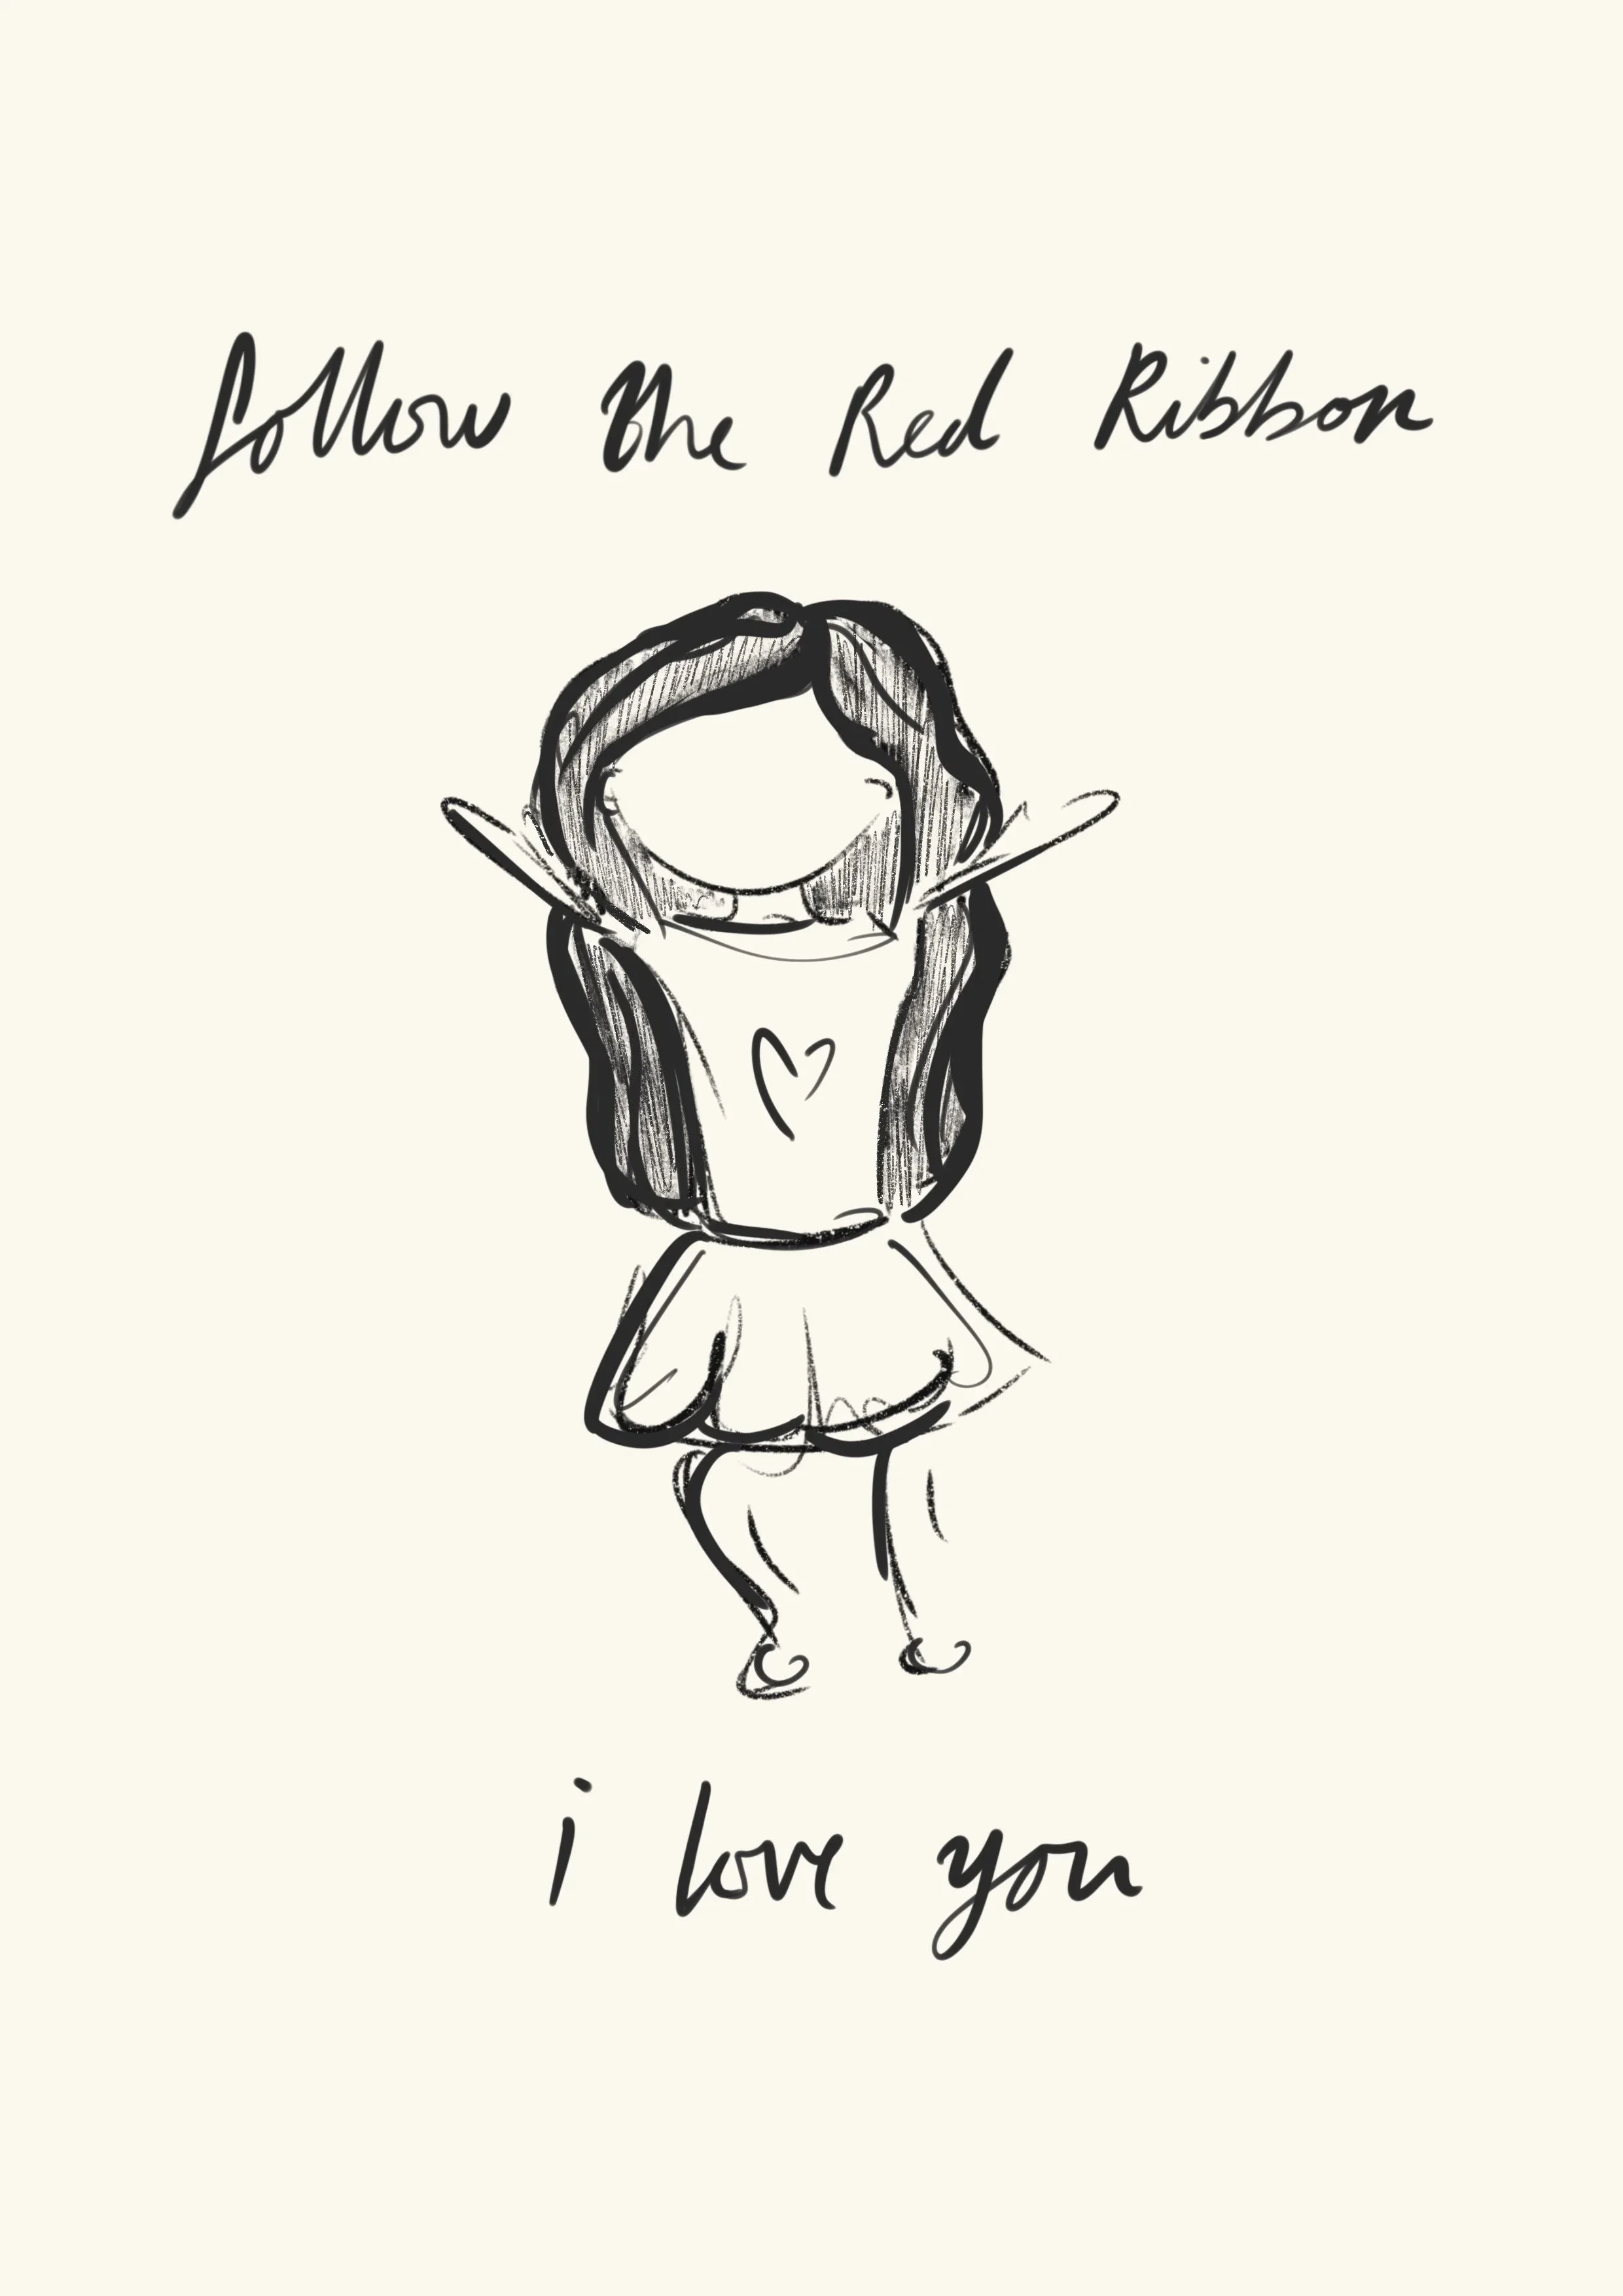 follow the Red Ribbon
i love you